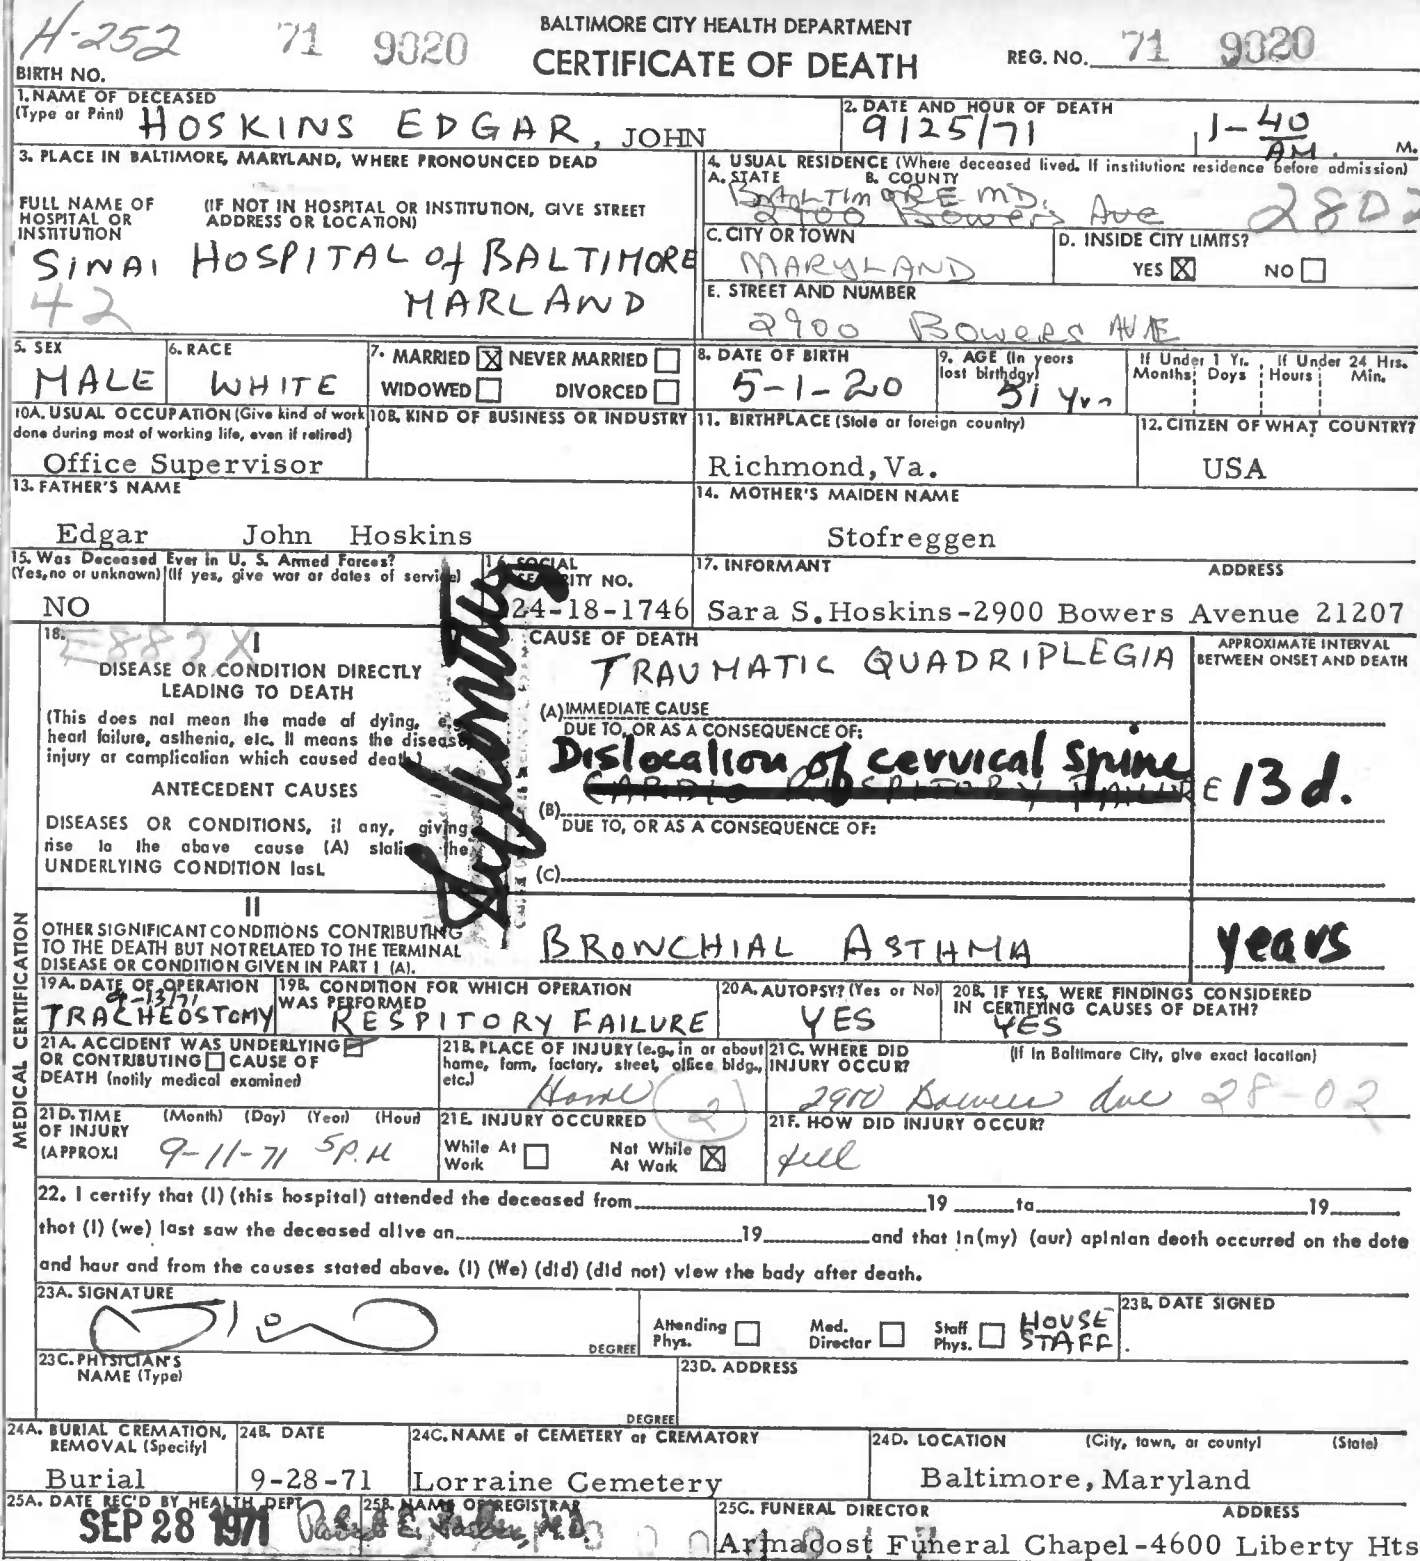 H-252 71 9020 BALTIMORE CITY HEALTH DEPARTMENT
CERTIFICATE OF DEATH REG. NO. 71 9020
BIRTH NO.
1. NAME OF DECEASED
(Type or Print) HOSKINS EDGAR, JOHN
2. DATE AND HOUR OF DEATH
9/25/71 1-40 AM. M.
3. PLACE IN BALTIMORE, MARYLAND, WHERE PRONOUNCED DEAD
FULL NAME OF HOSPITAL OR INSTITUTION
(IF NOT IN HOSPITAL OR INSTITUTION, GIVE STREET ADDRESS OR LOCATION)
SINAI HOSPITAL of BALTIMORE
42 MARLAND
4. USUAL RESIDENCE (Where deceased lived. If institution: residence before admission)
A. STATE B. COUNTY
BALTIMORE MD.
2900 Bowers Ave 2802
C. CITY OR TOWN
MARYLAND
D. INSIDE CITY LIMITS?
YES ☒ NO ☐
E. STREET AND NUMBER
2900 Bowers AVE
5. SEX
MALE
6. RACE
WHITE
7. MARRIED ☒ NEVER MARRIED ☐
WIDOWED ☐ DIVORCED ☐
8. DATE OF BIRTH
5-1-20
9. AGE (In years last birthday)
51 Yrs
If Under 1 Yr. If Under 24 Hrs.
Months Days Hours Min.
10A. USUAL OCCUPATION (Give kind of work done during most of working life, even if retired)
Office Supervisor
10B. KIND OF BUSINESS OR INDUSTRY
11. BIRTHPLACE (State or foreign country)
Richmond, Va.
12. CITIZEN OF WHAT COUNTRY?
USA
13. FATHER'S NAME
Edgar John Hoskins
14. MOTHER'S MAIDEN NAME
Stofreggen
15. Was Deceased Ever in U. S. Armed Forces?
(Yes, no or unknown) (If yes, give war or dates of service)
NO
16. SOCIAL SECURITY NO.
24-18-1746
17. INFORMANT ADDRESS
Sara S. Hoskins-2900 Bowers Avenue 21207
18. E887X I
DISEASE OR CONDITION DIRECTLY
LEADING TO DEATH
(This does not mean the mode of dying, e.g.
heart failure, asthenia, etc. It means the disease,
injury or complication which caused death.)
ANTECEDENT CAUSES
DISEASES OR CONDITIONS, if any, giving
rise to the above cause (A) stating the
UNDERLYING CONDITION last.
CAUSE OF DEATH
TRAUMATIC QUADRIPLEGIA
(A) IMMEDIATE CAUSE
DUE TO, OR AS A CONSEQUENCE OF:
Dislocation of cervical Spine 13 d.
CARDIO RESPITORY FAILURE
(B)
DUE TO, OR AS A CONSEQUENCE OF:
(C)
APPROXIMATE INTERVAL
BETWEEN ONSET AND DEATH
II
OTHER SIGNIFICANT CONDITIONS CONTRIBUTING
TO THE DEATH BUT NOT RELATED TO THE TERMINAL
DISEASE OR CONDITION GIVEN IN PART I (A).
BRONCHIAL ASTHMA years
MEDICAL CERTIFICATION
19A. DATE OF OPERATION
9-13/71
TRACHEOSTOMY
19B. CONDITION FOR WHICH OPERATION
WAS PERFORMED
RESPITORY FAILURE
20A. AUTOPSY? (Yes or No)
YES
20B. IF YES, WERE FINDINGS CONSIDERED
IN CERTIFYING CAUSES OF DEATH?
YES
21A. ACCIDENT WAS UNDERLYING ☑
OR CONTRIBUTING ☐ CAUSE OF
DEATH (notify medical examiner)
21B. PLACE OF INJURY (e.g., in or about
home, farm, factory, street, office bldg.,
etc.)
Home 2
21C. WHERE DID (If in Baltimore City, give exact location)
INJURY OCCUR?
2900 Bowers Ave 28-02
21D. TIME (Month) (Day) (Year) (Hour)
OF INJURY
(APPROX.) 9-11-71 5P.M
21E. INJURY OCCURRED
While At Work ☐ Not While At Work ☒
21F. HOW DID INJURY OCCUR?
fell
22. I certify that (I) (this hospital) attended the deceased from 19 to 19
that (I) (we) last saw the deceased alive on 19 and that in (my) (our) opinion death occurred on the date
and hour and from the causes stated above. (I) (We) (did) (did not) view the body after death.
23A. SIGNATURE
DEGREE
Attending Phys. ☐ Med. Director ☐ Staff Phys. ☐ HOUSE STAFF.
23B. DATE SIGNED
23C. PHYSICIAN'S
NAME (Type)
DEGREE
23D. ADDRESS
24A. BURIAL CREMATION,
REMOVAL (Specify)
Burial
24B. DATE
9-28-71
24C. NAME of CEMETERY or CREMATORY
Lorraine Cemetery
24D. LOCATION (City, town, or county) (State)
Baltimore, Maryland
25A. DATE REC'D BY HEALTH DEPT.
SEP 28 1971
25B. NAME OF REGISTRAR
Robert E. Farber, M.D.
25C. FUNERAL DIRECTOR ADDRESS
Armacost Funeral Chapel-4600 Liberty Hts